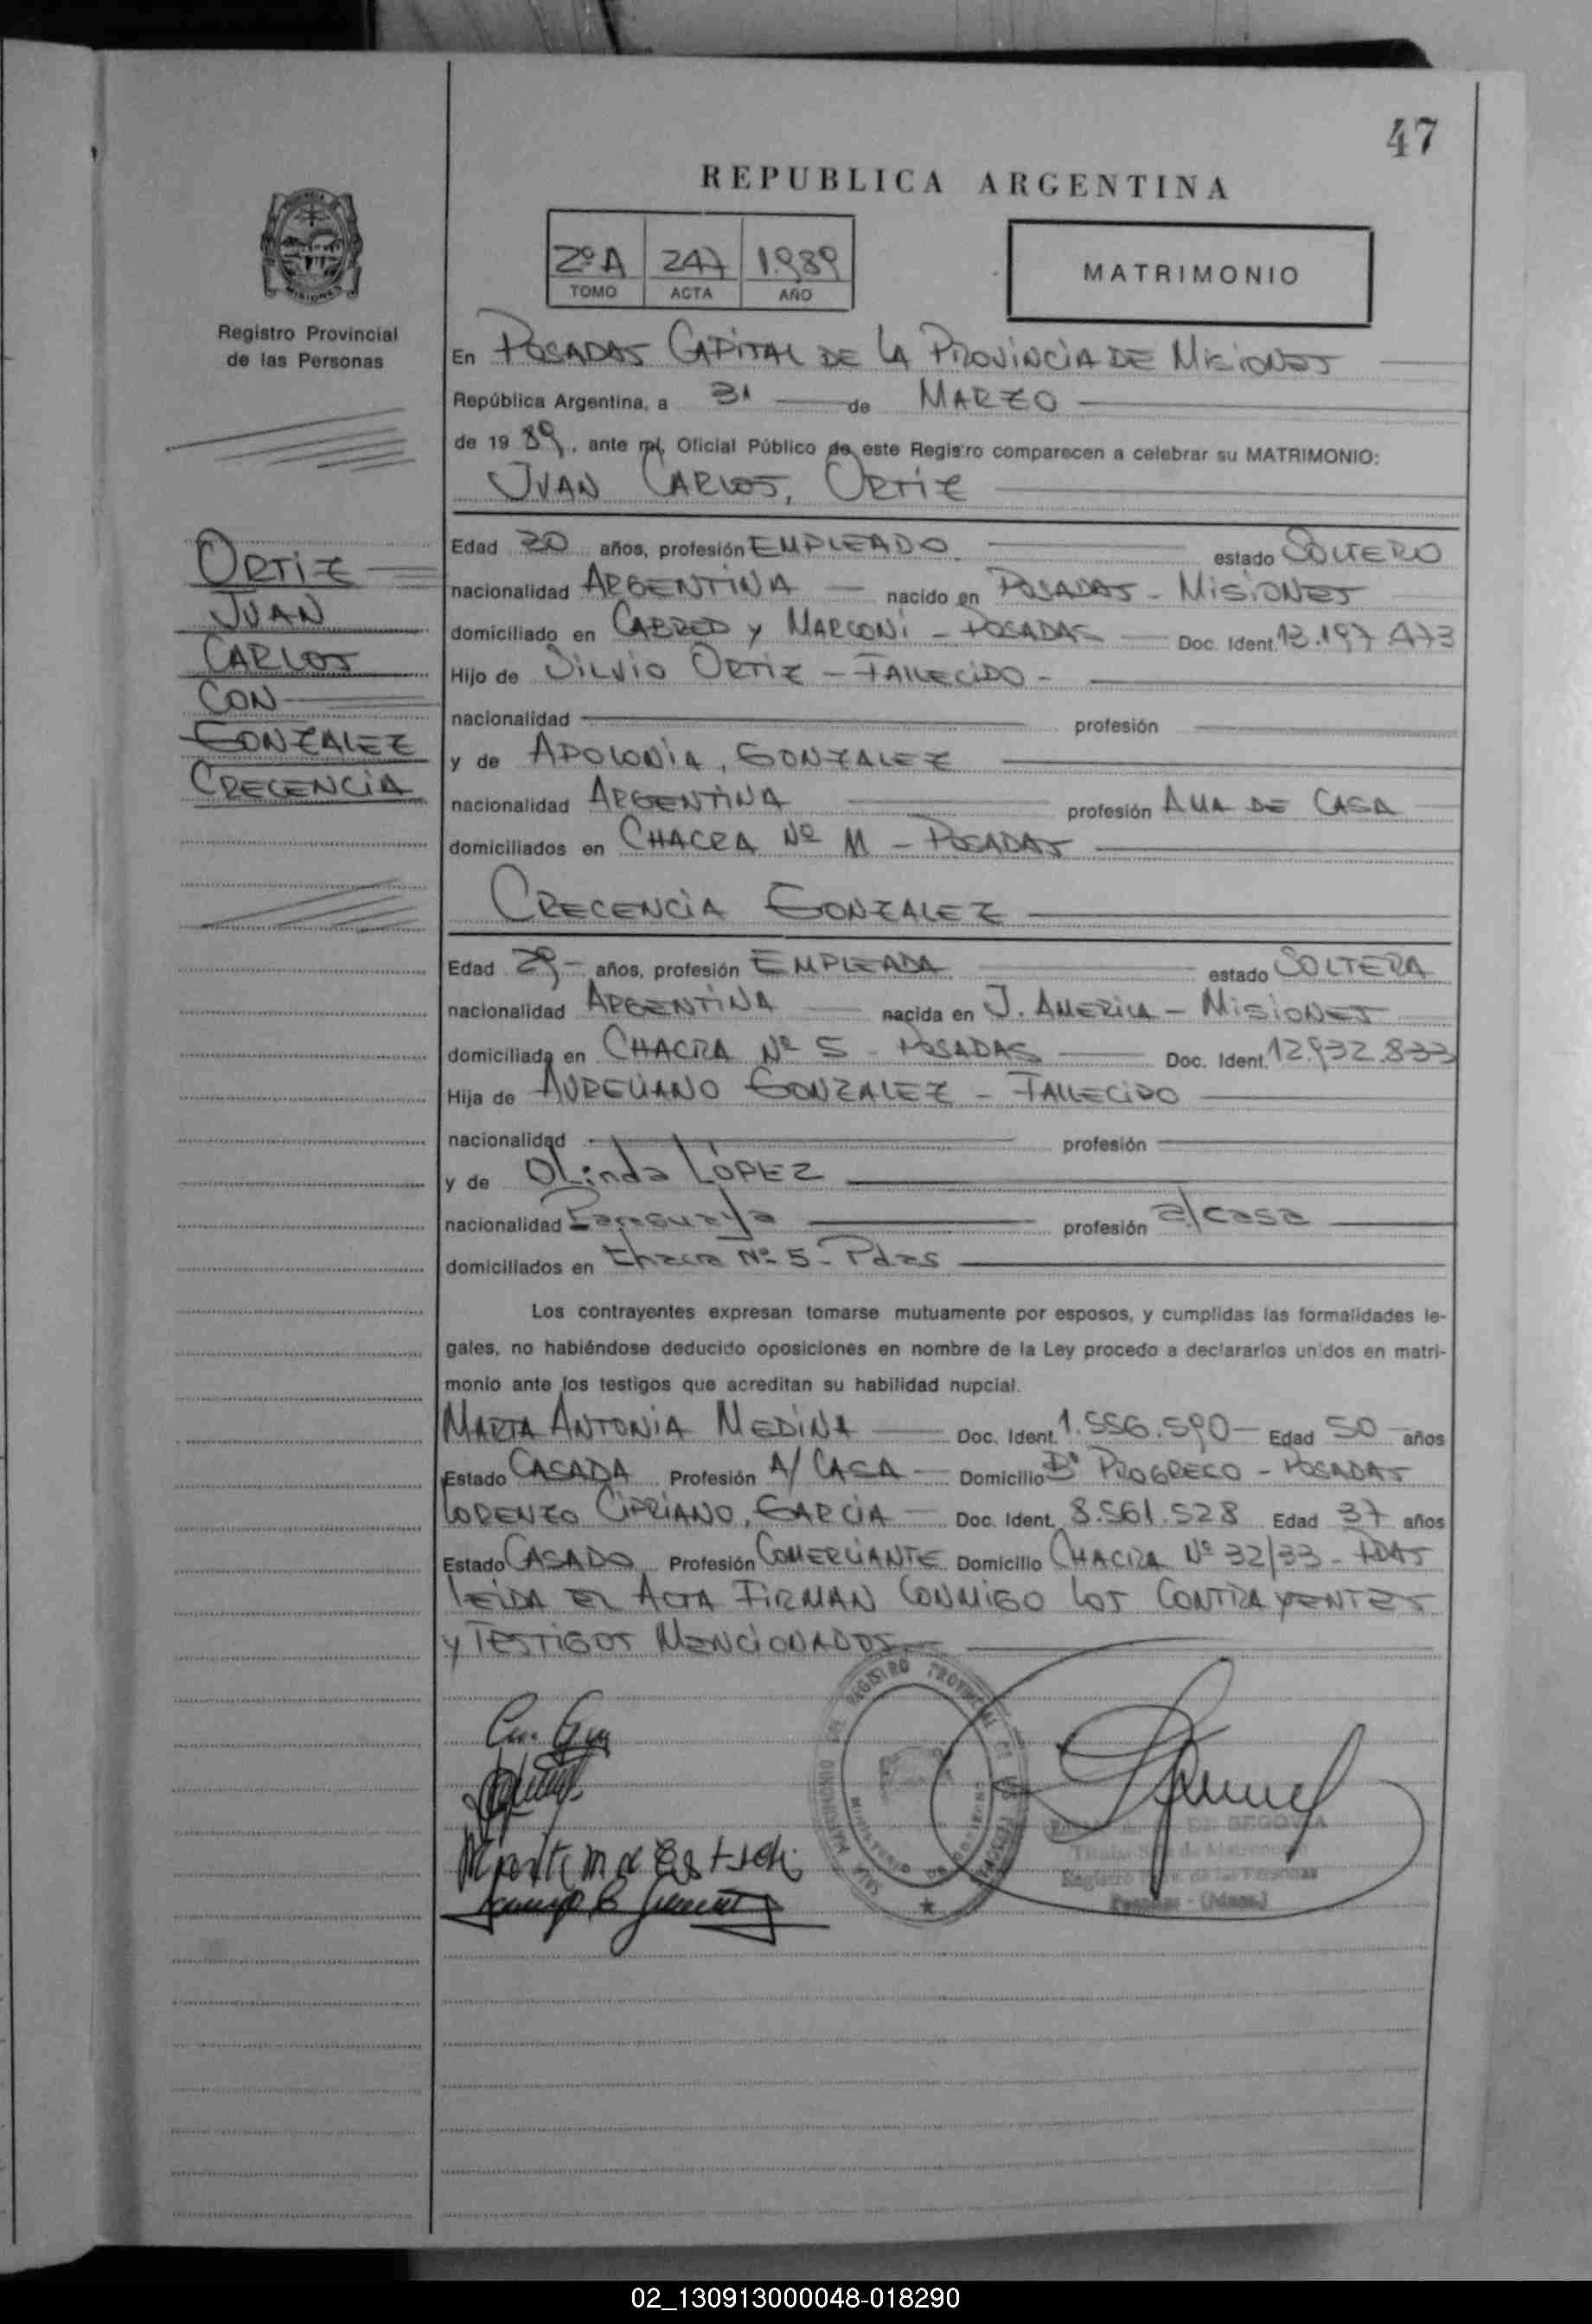 47
REPUBLICA ARGENTINA
2º A 247 1.989
TOMO ACTA AÑO
MATRIMONIO
MISIONES
Registro Provincial
de las Personas
En POSADAS CAPITAL DE LA PROVINCIA DE MISIONES
República Argentina, a 31 de MARZO
de 19 89, ante mí, Oficial Público de este Registro comparecen a celebrar su MATRIMONIO:
JUAN CARLOS, ORTIZ
ORTIZ
JUAN
CARLOS
CON
GONZALEZ
CRECENCIA
Edad años, profesión EMPLEADO estado SOLTERO
nacionalidad ARGENTINA nacido en POSADAS - MISIONES
domiciliado en CABRED y MARCONI - POSADAS Doc. Ident. 13.197.473
Hijo de SILVIO ORTIZ - FALLECIDO -
nacionalidad profesión
y de APOLONIA, GONZALEZ
nacionalidad ARGENTINA profesión AMA DE CASA
domiciliados en CHACRA Nº 11 - POSADAS
CRECENCIA GONZALEZ
Edad 29- años, profesión EMPLEADA estado SOLTERA
nacionalidad ARGENTINA nacida en J. AMERICA - MISIONES
domiciliada en CHACRA Nº 5 - POSADAS Doc. Ident. 12.932.833
Hija de AURELIANO GONZALEZ - FALLECIDO
nacionalidad profesión
y de OLinda LOPEZ
nacionalidad Paraguaya profesión a/casa
domiciliados en Chacra Nº 5 - Pdas
Los contrayentes expresan tomarse mutuamente por esposos, y cumplidas las formalidades le-
gales, no habiéndose deducido oposiciones en nombre de la Ley procedo a declararlos unidos en matri-
monio ante los testigos que acreditan su habilidad nupcial.
MARTA ANTONIA MEDINA Doc. Ident. 1.556.590 Edad 50 años
Estado CASADA Profesión A/ CASA Domicilio Bº PROGRECO - POSADAS
LORENZO CIPRIANO, GARCIA Doc. Ident. 8.561.528 Edad 37 años
Estado CASADO Profesión COMERCIANTE Domicilio CHACRA Nº 32/33 - PDAS
LEIDA EL ACTA FIRMAN CONMIGO LOS CONTRAYENTES
y TESTIGOS MENCIONADOS
REGISTRO PROVINCIAL DE LAS PERSONAS
SEGOVIA
Registro Prov. de las Personas
Posadas - (Mnes.)
02_130913000048-018290